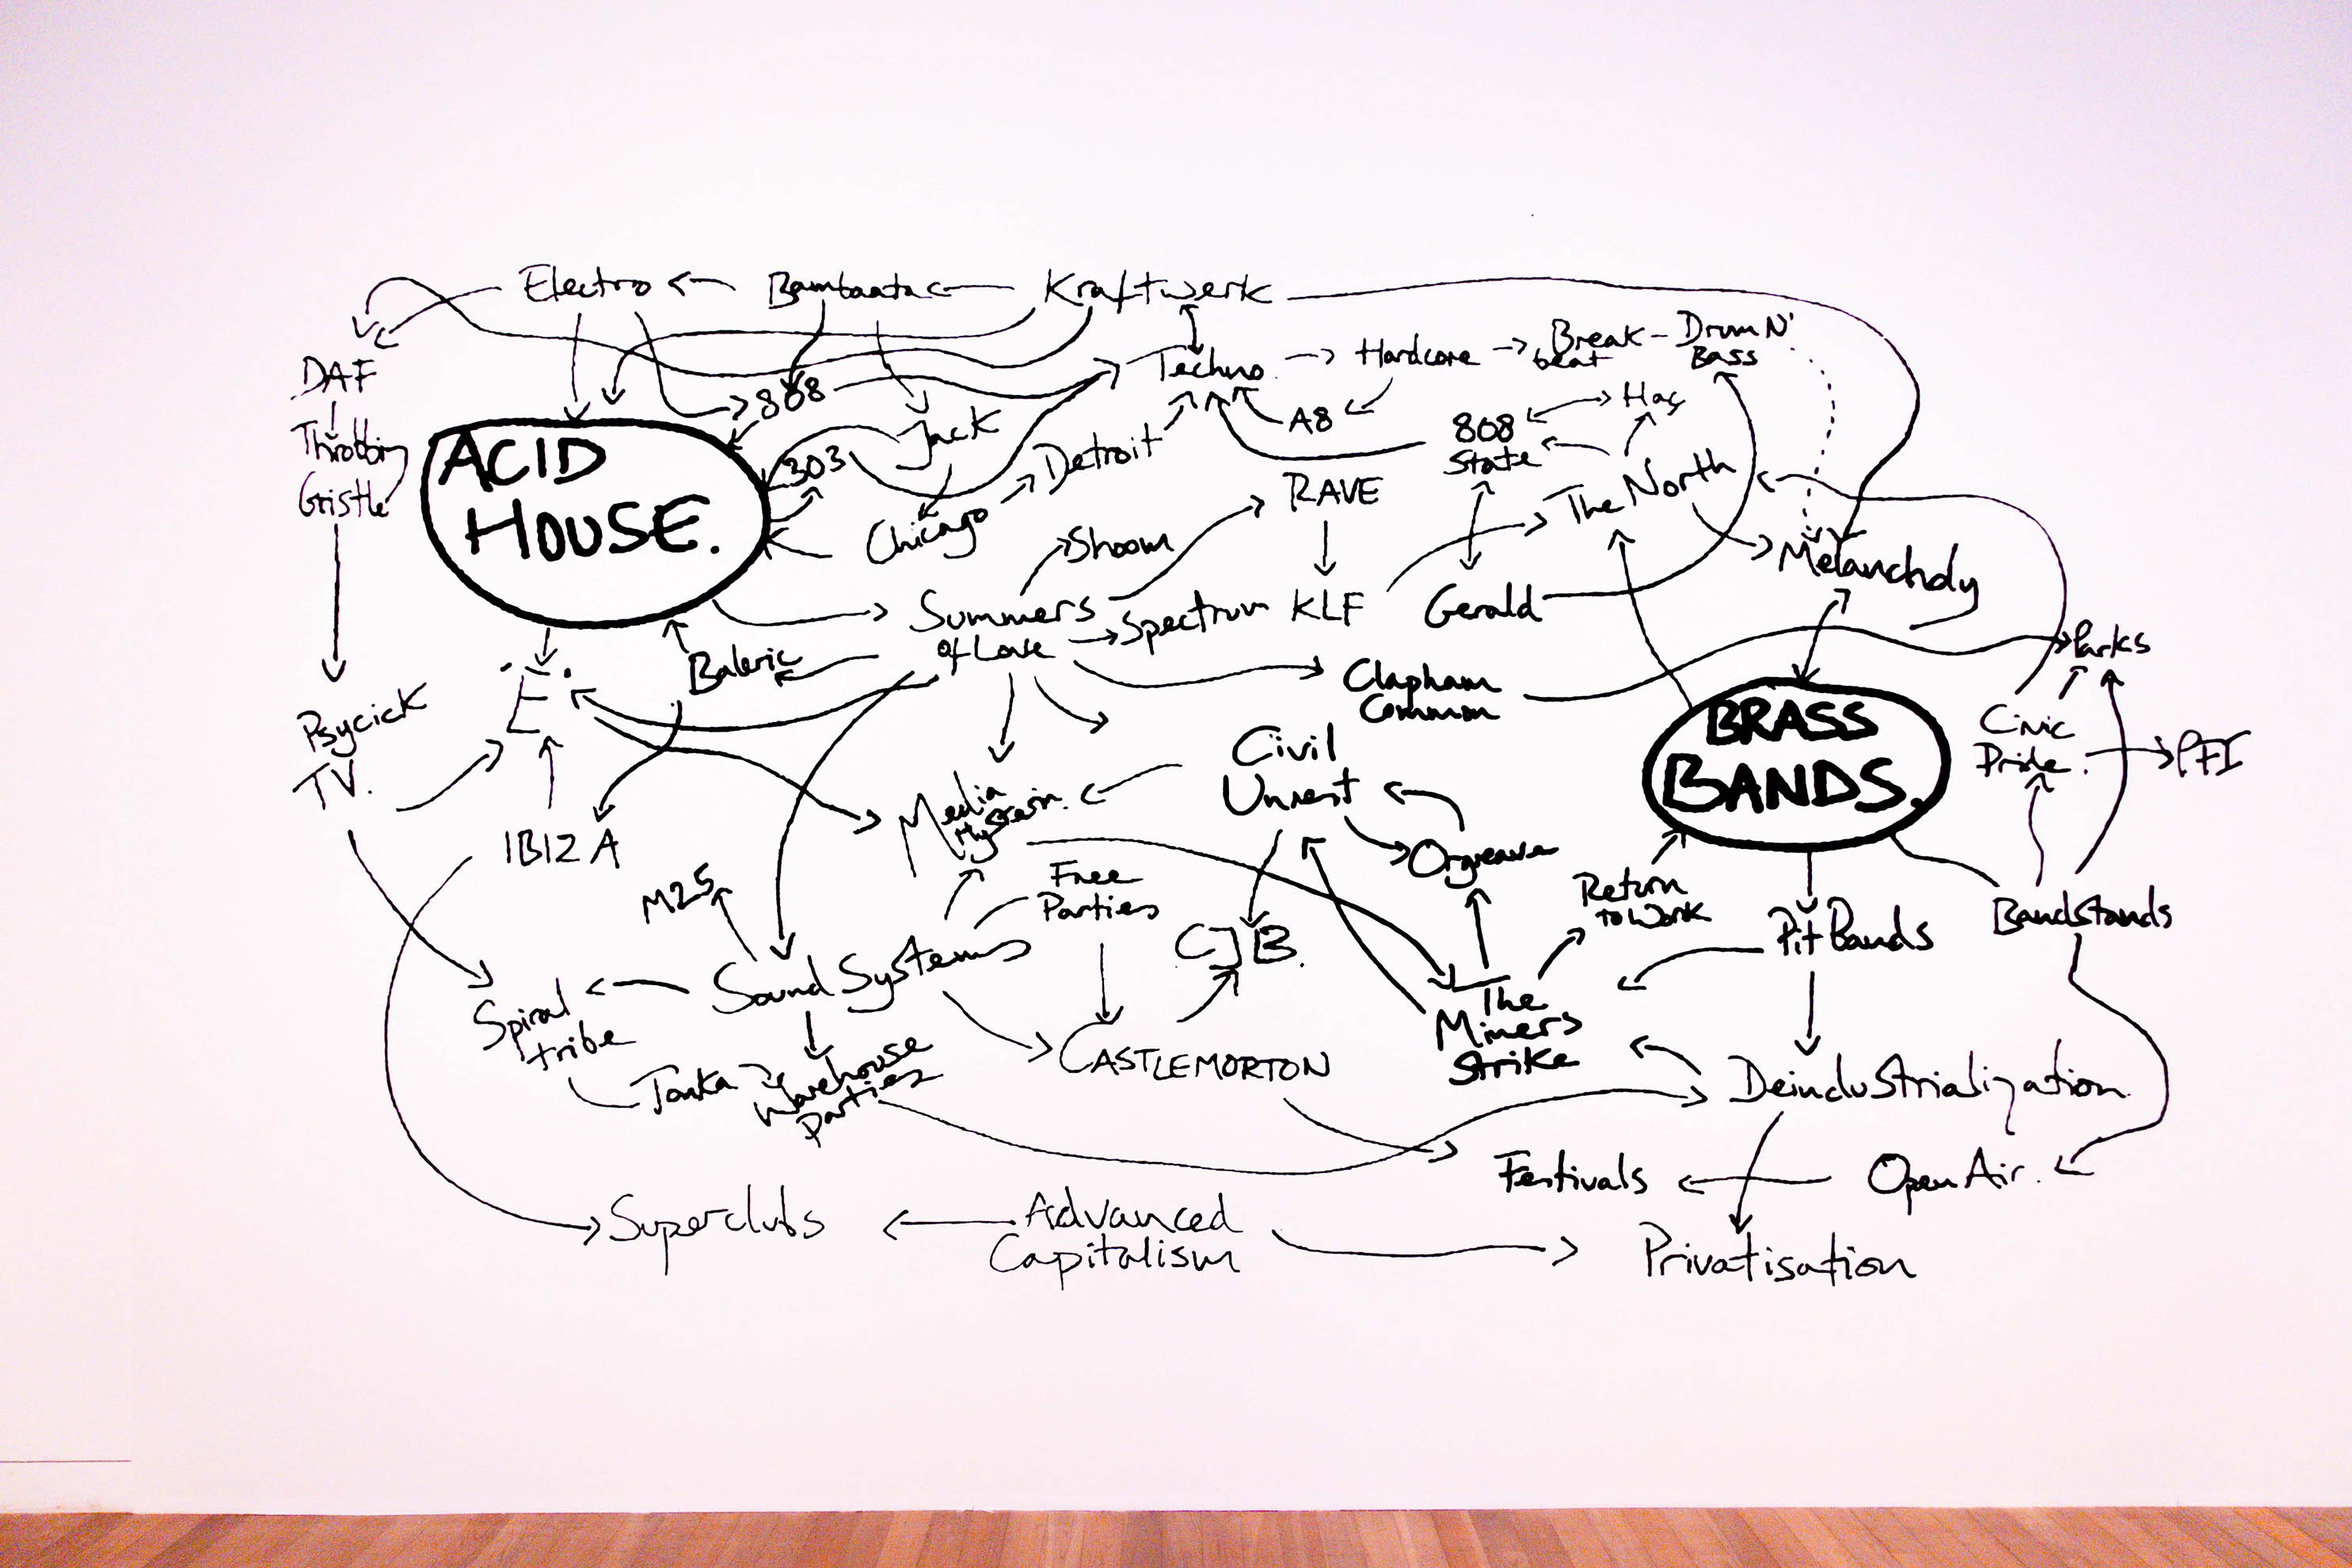 Electro
Bambaata
Kraftwerk
DAF
Throbbing
Gristle
808
Techno
Hardcore
Break-
beat
Drum N'
Bass
ACID
HOUSE.
303
Jack
Detroit
A8
808
State
Haç
Chicago
Shoom
RAVE
The North
Melancholy
Summers
of Love
Spectrum
KLF
Gerald
Parks
Psycick
TV.
'E'.
Baleric
Clapham
Common
BRASS
BANDS.
Civic
Pride.
PFI
Civil
Unrest
Media
Hysteria.
IBIZA
M25
Free
Parties
Orgreave
Return
to Work
Pit Bands
Bandstands
Sound Systems
CJB.
Spiral
tribe
The
Miners
Strike
Tonka
Warehouse
parties
CASTLEMORTON
Deindustrialization
Festivals
Open Air.
Superclubs
Advanced
Capitalism
Privatisation